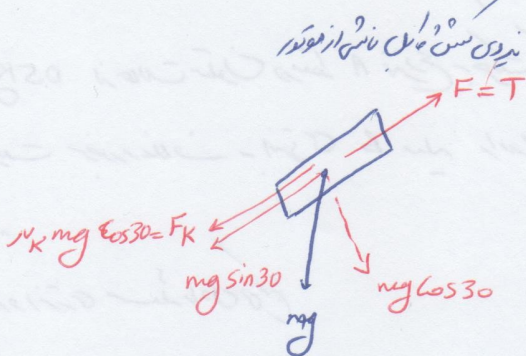 نیروی کشش کابل ناشی از موتور
F = T
μk mg cos30 = Fk
mg sin30
mg cos30
mg